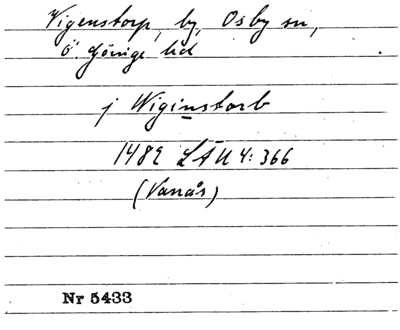 Vigenstorp, by, Osby sn,
Ö. Göinge hd
j Wiginstorb
1482 LÄU 4:366
(Vanås)
Nr 5433